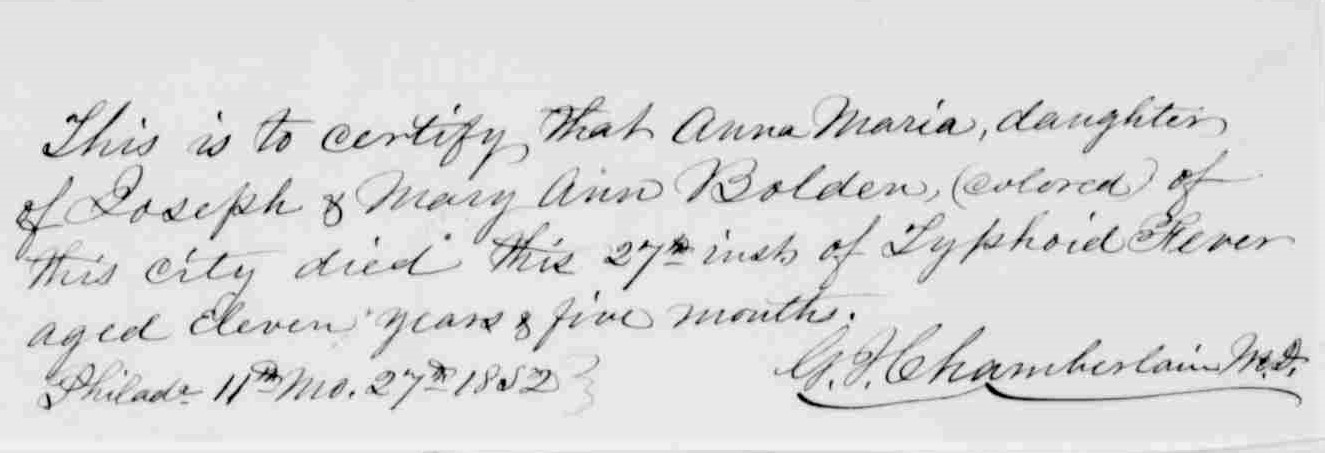 This is to certify that Anna Maria, daughter
of Joseph & Mary Ann Bolden, (colored) of
this city died this 27th inst of Typhoid Fever
aged Eleven years & five months.
Philada 11th Mo. 27th 1852 }
G. F. Chamberlain M.D.